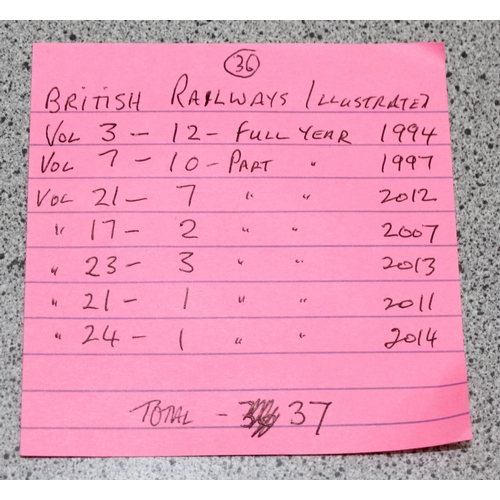 36
BRITISH RAILWAYS ILLUSTRATED
VOL 3 - 12 - FULL YEAR 1994
VOL 7 - 10 - PART " 1997
VOL 21 - 7 " " 2012
" 17 - 2 " " 2007
" 23 - 3 " " 2013
" 21 - 1 " " 2011
" 24 - 1 " " 2014
TOTAL - 37